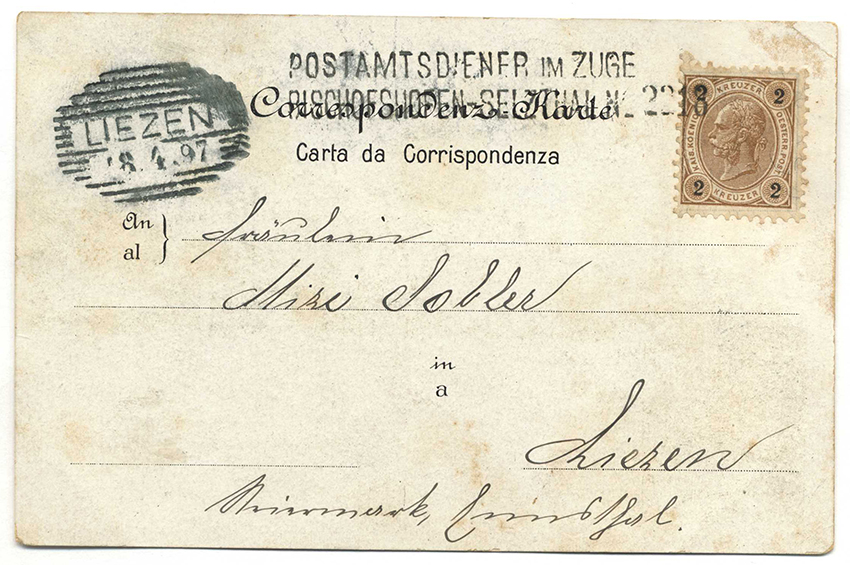 POSTAMTSDIENER IM ZUGE
BISCHOFSHOFEN-SELZTHAL Nº 2218
LIEZEN
8.4.97
Correspondenz-Karte
Carta da Corrispondenza
2 KREUZER 2
KAIS. KOENIGL. OESTERR. POST
2 KREUZER 2
An
al
Fräulein
Mizi Tobler
in
a
Liezen
Steiermark, Ennsthal.